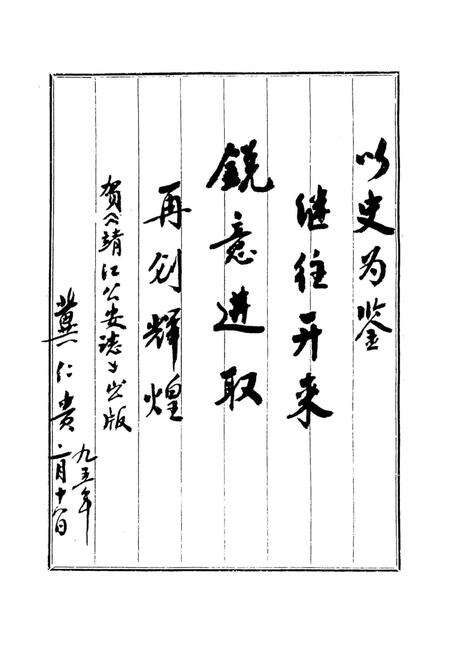 以史为鉴
继往开来
锐意进取
再创辉煌
贺《靖江公安志》出版
冀仁贵
九五年
二月十八日